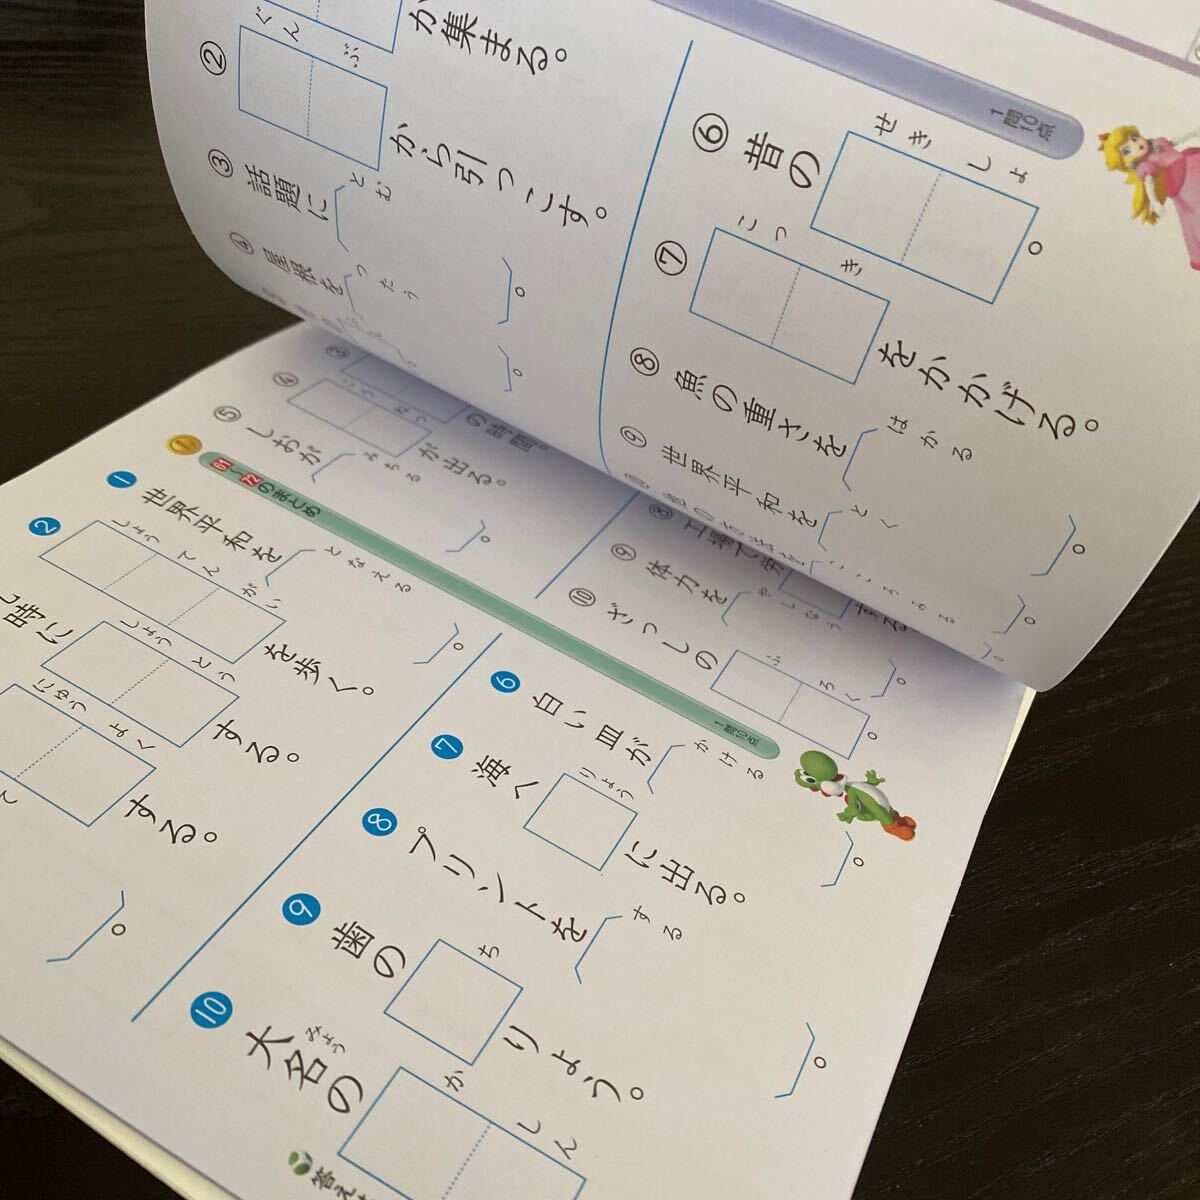 が集まる。
② ぐんぶ から引っこす。
③ 話題に とむ 。
④ 屋根を つたう 。
1問10点
⑥ 昔の せきしょ 。
⑦ こっき をかかげる。
⑧ 魚の重さを はかる 。
⑨ 世界平和を とく 。
③ の時間。
④ ねつ が出る。
⑤ しおが みちる 。
⑧ 工場で労 する
⑨ 体力を やしなう 。
⑩ ざっしの ふろく 。
61〜72のまとめ
1問10点
1 世界平和を となえる 。
2 しょうてんがい を歩く。
時に しょうとう する。
にゅうよく する。
6 白い皿が かける 。
7 海へ りょう に出る。
8 プリントを する 。
9 歯の ち りょう。
10 大名の みょう かしん
答え